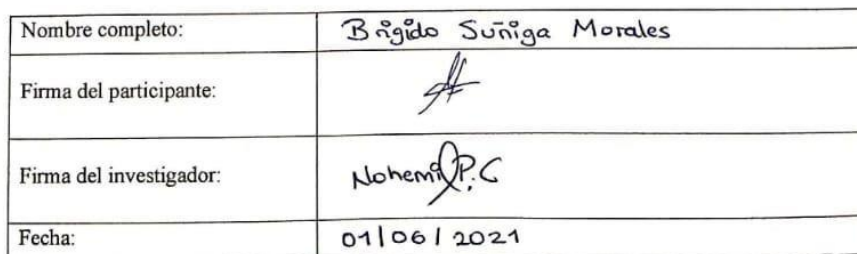 Nombre completo: Brígido Suñiga Morales
Firma del participante:
Firma del investigador: Nohemi P.C
Fecha: 01/06/2021